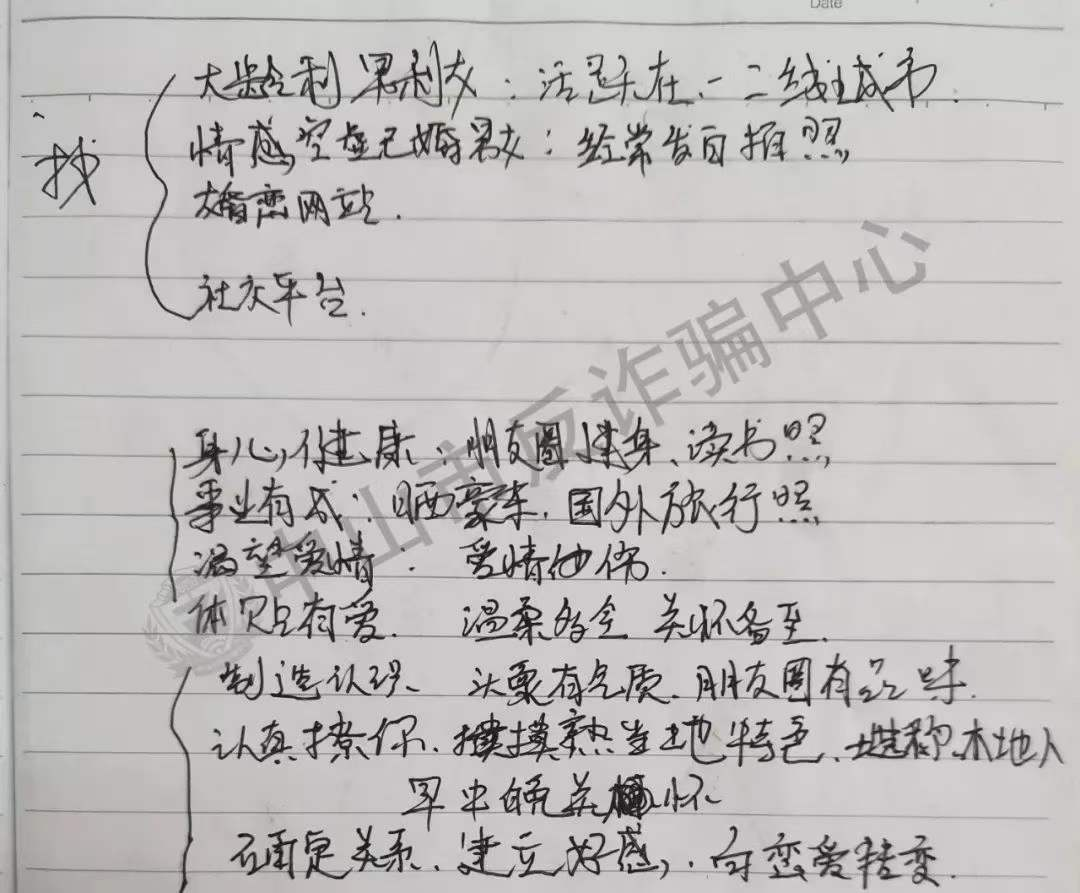 Date
大龄剩男剩女：活跃在一二线城市.
找
情感空虚已婚男女：经常发自拍照
婚恋网站.
社交平台.
中山市反诈骗中心
身心健康：朋友圈健身、读书照
事业有成：晒豪车.国外旅行照
渴望爱情：爱情他伤.
体贴有爱.温柔多金 关怀备至.
制造认识、头像有气质.朋友圈有品味.
认真撩你.摸熟当地特色.谎称本地人
早中晚关怀
确定关系.建立好感.向恋爱转变.